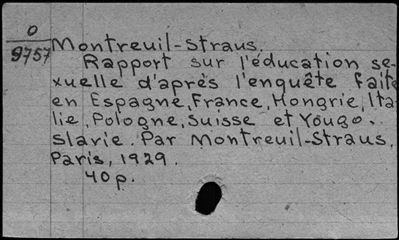 O
9757
Montreuil-Straus.
Rapport sur l'éducation se-
xuelle d'après l'enquête faite
en Espagne, France, Hongrie, Ita
lie, Pologne, Suisse et Yougo-
slavie. Par Montreuil-Straus.
Paris, 1929.
40 p.